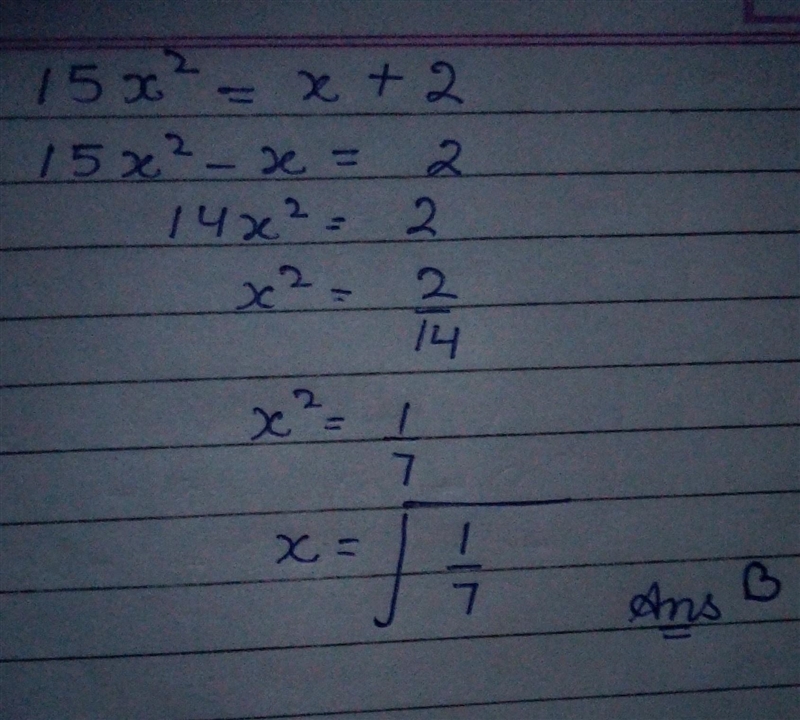 15x² = x + 2
15x² - x = 2
14x² = 2
x² = 2/14
x² = 1/7
x = √1/7
Ans B